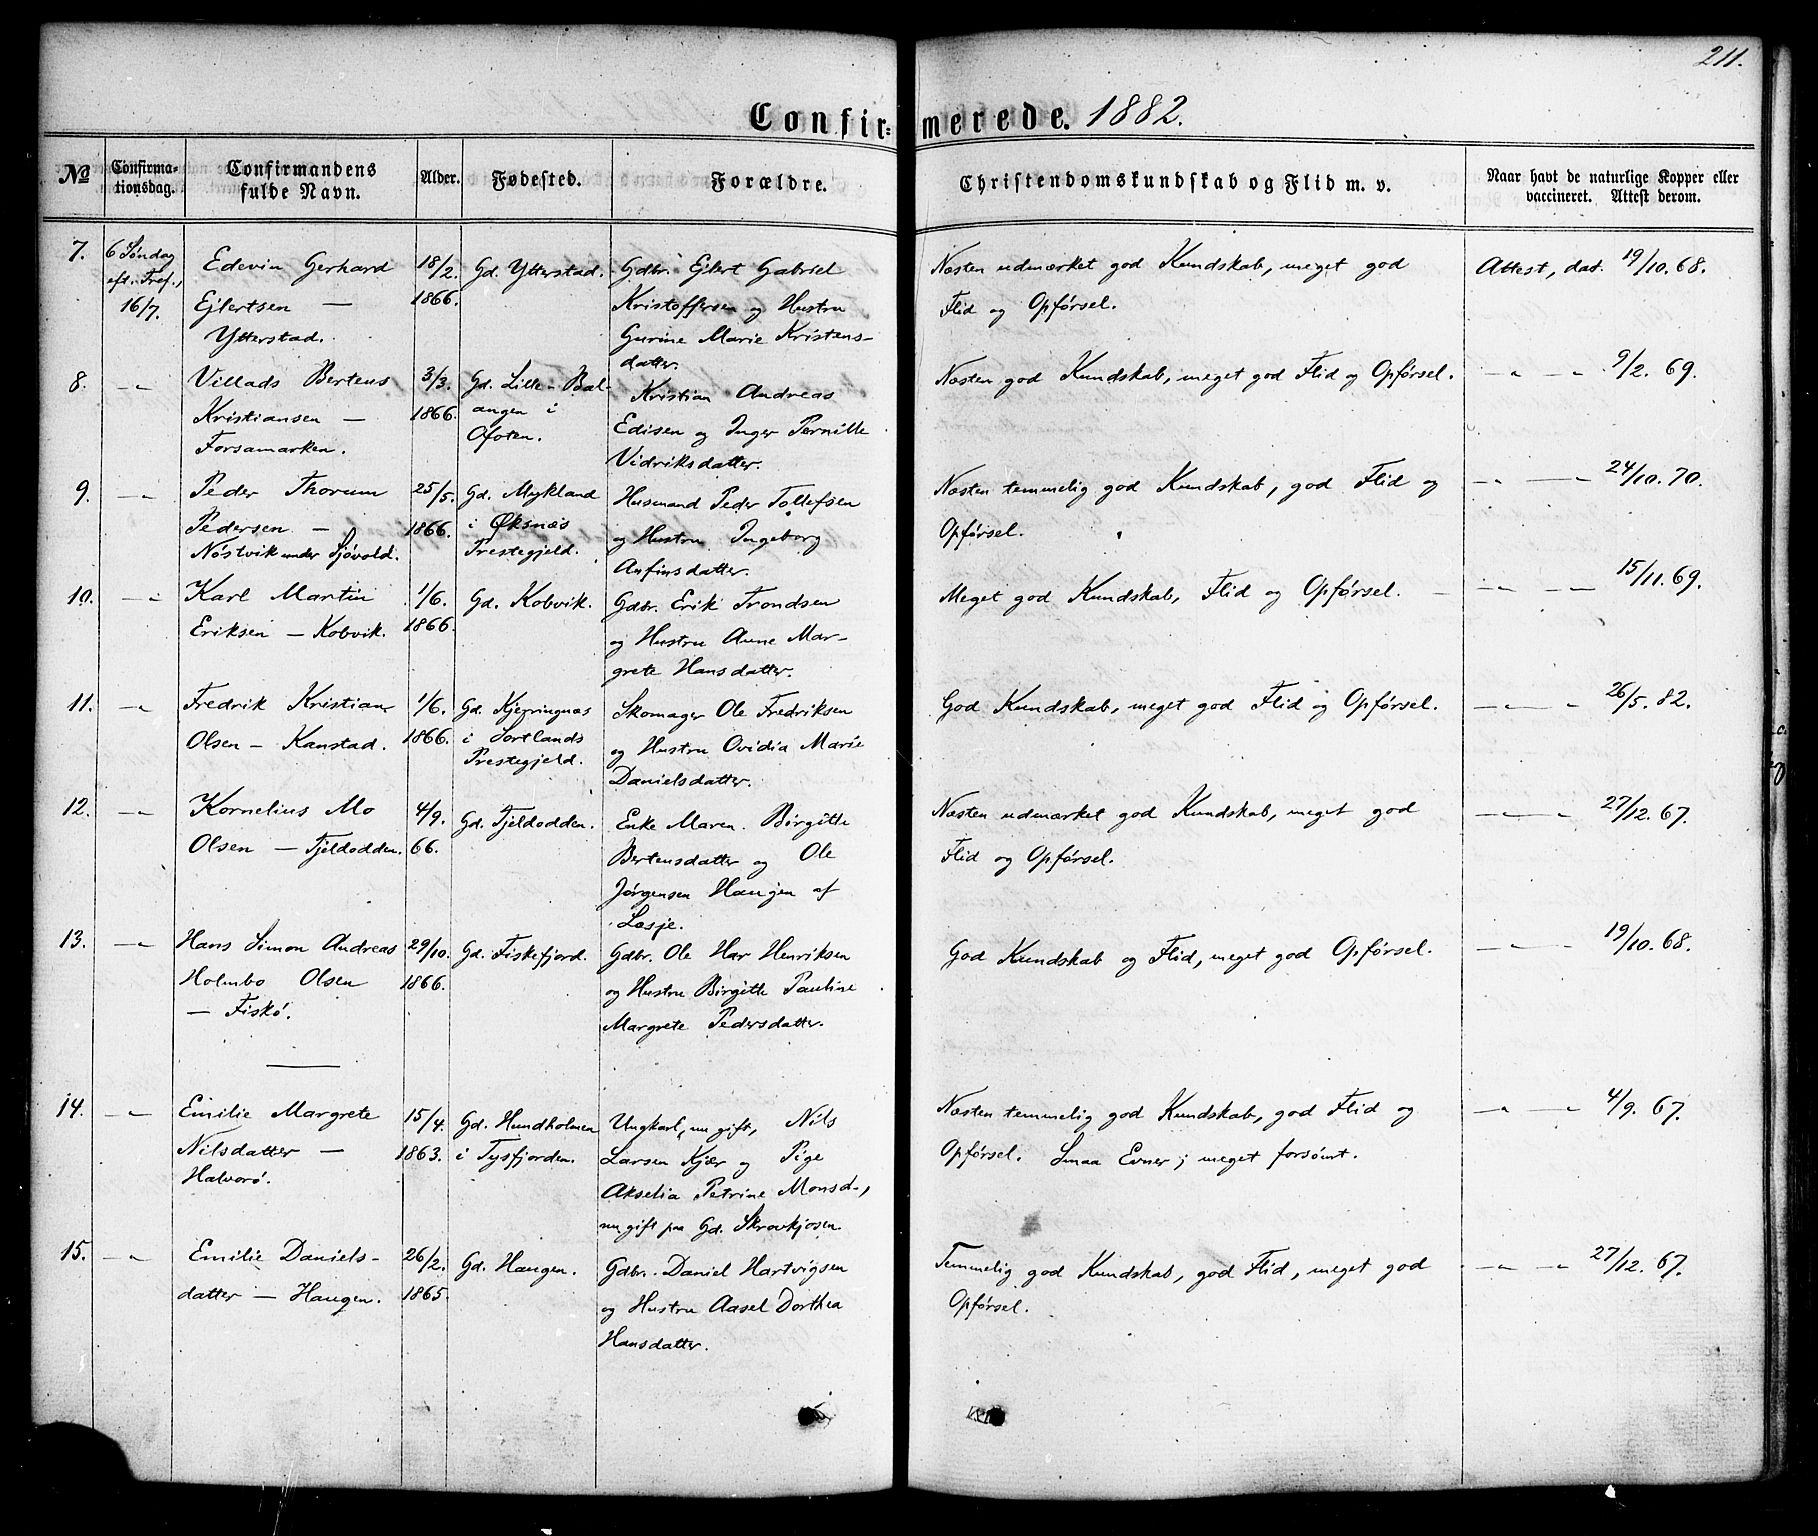 211.
Confirmerede. 1882.
No
Confirmationsdag.
Confirmandens fulde Navn.
Alder.
Fødested.
Forældre.
Christendomskundskab og Flid m. v.
Naar havt de naturlige Kopper eller vaccineret. Attest derom.
7.
6 Søndag
eft. Tref.,
16/7.
Edevin Gerhard
Ejlertsen —
Ytterstad.
18/2.
1866.
Gd. Ytterstad.
Gdbr. Ejlert Gabriel
Kristoffersen og Hustru
Gurine Marie Kristens-
datter.
Næsten udmærket god Kundskab, meget god
Flid og Opførsel.
Attest, dat. 19/10. 68.
8.
— " —
Villads Bertens
Kristiansen —
Forsamarken.
3/3.
1866.
Gd. Lille-Bal-
angen i
Ofoten.
Kristian Andreas
Edisen og Inger Pernille
Vidriksdatter.
Næsten god Kundskab, meget god Flid og Opførsel.
— " — " 9/2. 69.
9.
— "
Peder Thorum
Pedersen —
Nöstvik under Sjövold.
25/5.
1866.
Gd. Mykland
i Øksnæs
Prestegjeld.
Husmand Peder Tollefsen
og Hustru Ingeborg
Anfinsdatter.
Næsten temmelig god Kundskab, god Flid og
Opførsel.
— " — 24/10. 70.
10.
— "
Karl Martin
Eriksen — Kobvik.
1/6.
1866.
Gd. Kobvik.
Gdbr. Erik Trondsen
og Hustru Anne Mar-
grete Hansdatter.
Meget god Kundskab, Flid og Opførsel.
— " — 15/11. 69.
11.
— "
Fredrik Kristian
Olsen — Kanstad.
1/6.
1866.
Gd. Kjerringnæs
i Sortlands
Prestegjeld.
Skomager Ole Fredriksen
og Hustru Ovidia Marie
Danielsdatter.
God Kundskab, meget god Flid og Opførsel.
— " — " 26/5. 82.
12.
— "
Kornelius Mo
Olsen — Fjeldodden.
4/9.
66.
Gd. Fjeldodden.
Enke Maren Birgitte
Bertensdatter og Ole
Jørgensen Haugen af
Lesje.
Næsten udmærket god Kundskab, meget god
Flid og Opførsel.
— " — " 27/12. 67.
13.
— "
Hans Simon Andreas
Holmbo Olsen
— Fiskø.
29/10.
1866.
Gd. Fiskefjord.
Gdbr. Ole Har Henriksen
og Hustru Birgitte Pauline
Margrete Pedersdatter.
God Kundskab og Flid, meget god Opførsel.
— " — " 19/10. 68.
14.
— "
Emilie Margrete
Nilsdatter —
Halvorø.
15/4.
1863.
Gd. Hundholmen
i Tysfjorden.
Ungkarl, nu gift, Nils
Larsen Kjær og Pige
Akselia Petrine Monsd.,
nu gift paa Gd. Skrovkjosen.
Næsten temmelig god Kundskab, god Flid og
Opførsel. Smaa Evner; meget forsømt.
— " — " 4/9. 67.
15.
— "
Emilie Daniels-
datter — Haugen.
26/2.
1865.
Gd. Haugen.
Gdbr. Daniel Hartvigsen
og Hustru Aasel Dorthea
Hansdatter.
Temmelig god Kundskab, god Flid, meget god
Opførsel.
— " — " 27/12. 67.